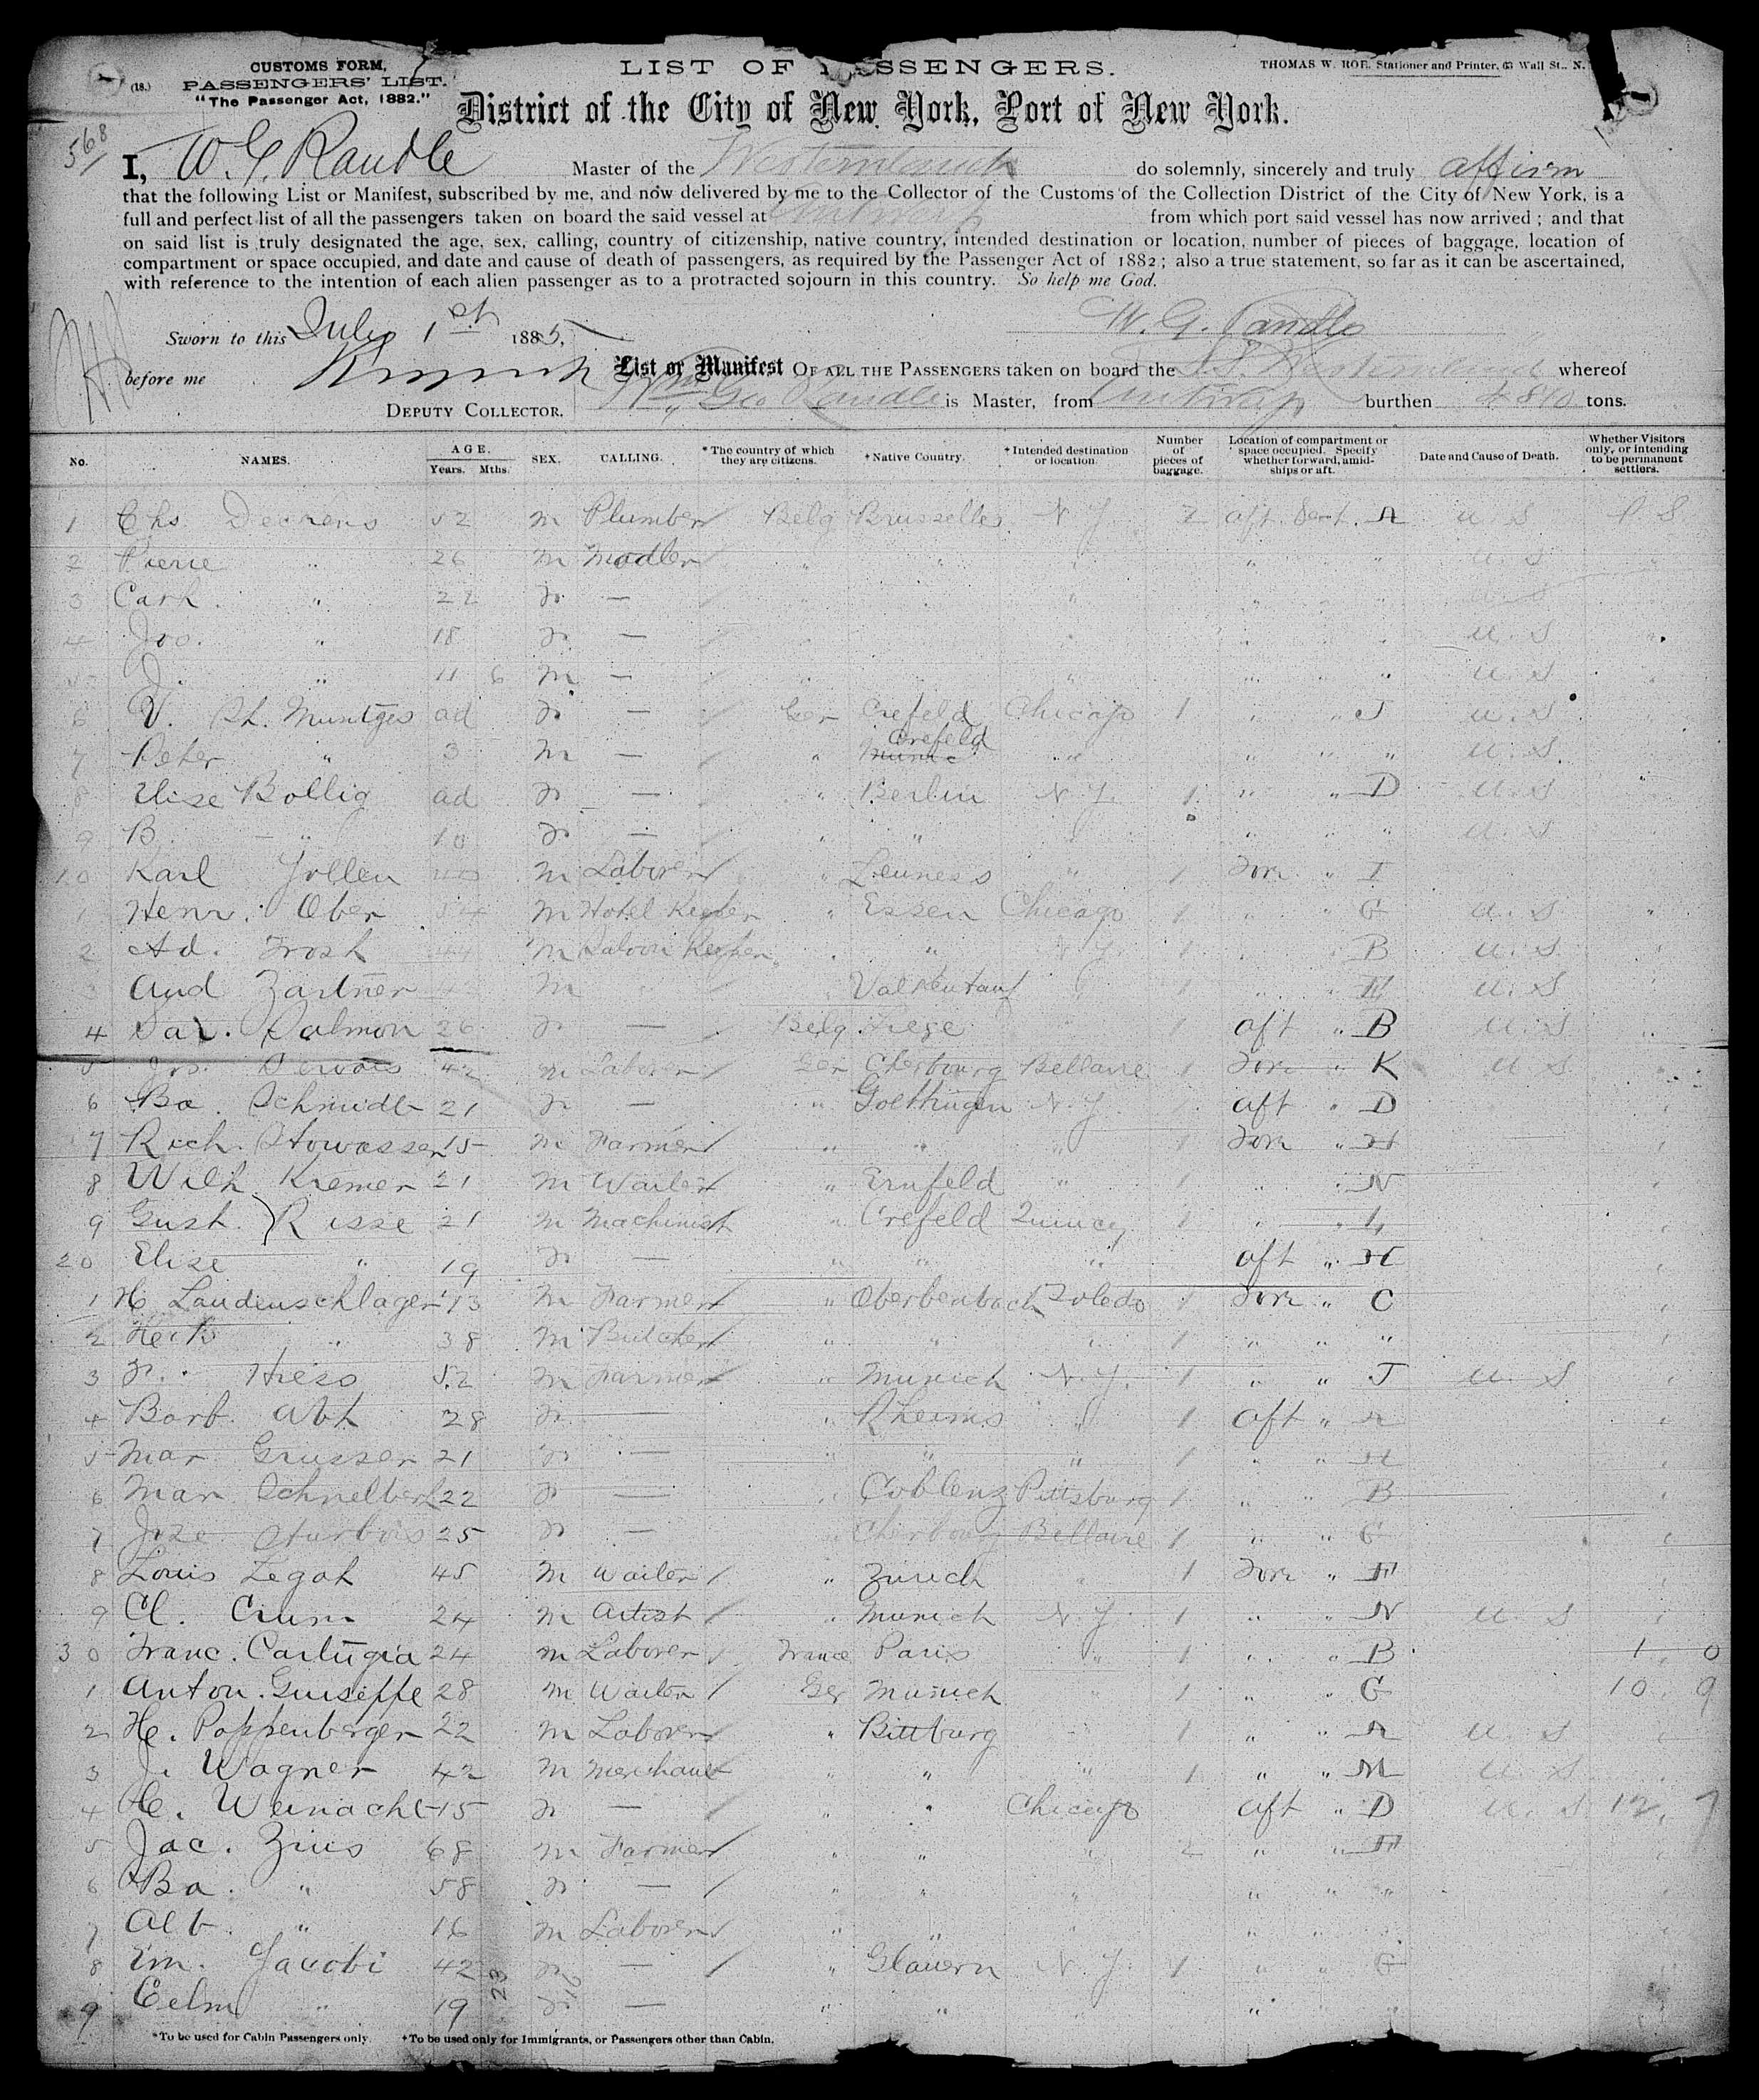 CUSTOMS FORM,
(18.) PASSENGERS' LIST.
"The Passenger Act, 1882."
LIST OF PASSENGERS.
THOMAS W. ROE, Stationer and Printer, 63 Wall St., N.
District of the City of New York, Port of New York.
568
I, W. G. Randle Master of the Westernland do solemnly, sincerely and truly affirm
that the following List or Manifest, subscribed by me, and now delivered by me to the Collector of the Customs of the Collection District of the City of New York, is a
full and perfect list of all the passengers taken on board the said vessel at Antwerp from which port said vessel has now arrived ; and that
on said list is truly designated the age, sex, calling, country of citizenship, native country, intended destination or location, number of pieces of baggage, location of
compartment or space occupied, and date and cause of death of passengers, as required by the Passenger Act of 1882 ; also a true statement, so far as it can be ascertained,
with reference to the intention of each alien passenger as to a protracted sojourn in this country. So help me God.
W. G. Randle
Sworn to this July 1st 1885,
before me
List or Manifest OF ALL THE PASSENGERS taken on board the S.S. Westernland whereof
DEPUTY COLLECTOR. Wm Geo Randle is Master, from Antwerp burthen tons.
No. NAMES. AGE. Years. Mths. SEX. CALLING. *The country of which they are citizens. †Native Country. †Intended destination or location. Number of pieces of baggage. Location of compartment or space occupied. Specify whether forward, amidships or aft. Date and Cause of Death. Whether Visitors only, or intending to be permanent settlers.
1 Chs. Deckens 52 m Plumber Belg Brusselles N. Y. 2 aft Sect. A U. S P. S.
2 Pierre " 26 m Modler " " " " " U. S
3 Cath. " 22 F — " U. S
4 Jos. " 18 F — " U. S
5 J. " 11 6 m — " " " U. S
6 V. Sh. Muntges ad F — Ger Crefeld Chicago 1 " " J U. S
7 Peter " 3 m — " Crefeld " " " U. S.
8 Elise Bollig ad F — " Berlin N. Y. 1 " " D U. S
9 B. " 10 F — " " " " " U. S
10 Karl Jollen 40 m Laborer " Lenness " 1 For " I
1 Henr. Ober 54 m Hotel Keeper " Essen Chicago 1 " " G U. S
2 Ad. Frosh 44 m Saloon Keeper " " N. Y. 1 " " B U. S
3 Aud Zartner m " 1 " " U. S
4 Salmon 26 F — Belg Liege 1 aft " B U. S
5 Jos. Servais 42 m Laborer Ger Cherbourg Bellaire 1 For " K U. S
6 Ba. Schmidt 21 F — " Goettingen N. Y. aft " D
7 Rich. Stowasser 15 m Farmer " " " 1 For " H
8 Wilh Kremer 21 m Waiter " Ernfeld " 1 " " N
9 Gust. Risse 21 m Machinist " Crefeld Quincy 1 " " L
20 Elise " 19 F — " " " aft " H
1 H. Laudenschlager 13 m Farmer " Oberbenbach Toledo 1 For " C
2 " 38 m Butcher " " " 1 " " "
3 F. Hess 52 m Farmer " Munich N. Y. 1 " " J U. S
4 Barb. Abt 28 F — " Rheims " 1 aft " A
5 Mar Grusser 21 F — " " 1 " " H
6 Mar Schnelbert 22 F — " Coblenz Pittsburg 1 " " B
7 Joze Sturbois 25 F — " Cherbourg Bellaire 1 " " G
8 Louis Zegah 45 m Waiter " Zurich " 1 For " F
9 Cl. Crum 24 m Artist " Munich N. Y. 1 " " N U. S
30 Franc. Cartugia 24 m Laborer France Paris " 1 " " B 1. 0
1 Anton. Guiseppe 28 m Waiter Ger Munich " 1 " " G 10. 9
2 H. Poppenberger 22 m Laborer " Bittburg 1 " " A U. S
3 J. Wagner 42 m Merchant " " " 1 " " M U. S
4 H. Weinacht 15 F — " " Chicago aft " D U. S 12. 7
5 Jac. Zius 68 m Farmer " " " 2 " " F
6 Ba. " 58 F — " " " " " "
7 Alb. " 16 m Laborer " " " " "
8 Em. Jacobi 42 F — " Glauern N. Y. 1 " " G
9 " 19 F — " " " "
23
*To be used for Cabin Passengers only. †To be used only for Immigrants, or Passengers other than Cabin.